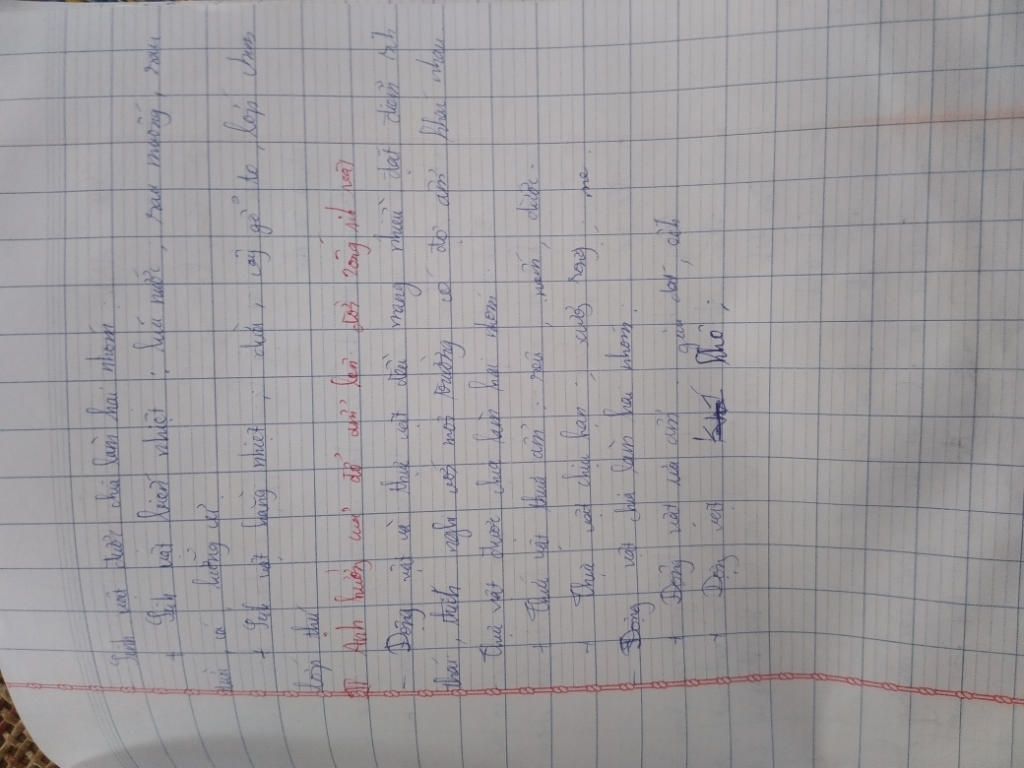 Sinh vật được chia làm hai nhóm
+ Sinh vật biến nhiệt: lúa nước, rau muống, rau
dừa, cá lưỡng cư
+ Sinh vật hằng nhiệt: chồn, cây gỗ to, lớp chim
lớp thú
II Ảnh hưởng của độ ẩm lên đời sống sinh vật
- Động vật và thực vật đều mang nhiều đặt điểm sinh
thái, thích nghi với môi trường có độ ẩm khác nhau
Thực vật được chia làm hai nhóm
+ Thực vật thưa ẩm: rêu, nấm, dước.
+ Thực vật chịu hạn: xương rồng, me.
- Động vật chia làm hai nhóm
+ Động vật ưa ẩm: giun đất, ếch
+ Động vật khô: